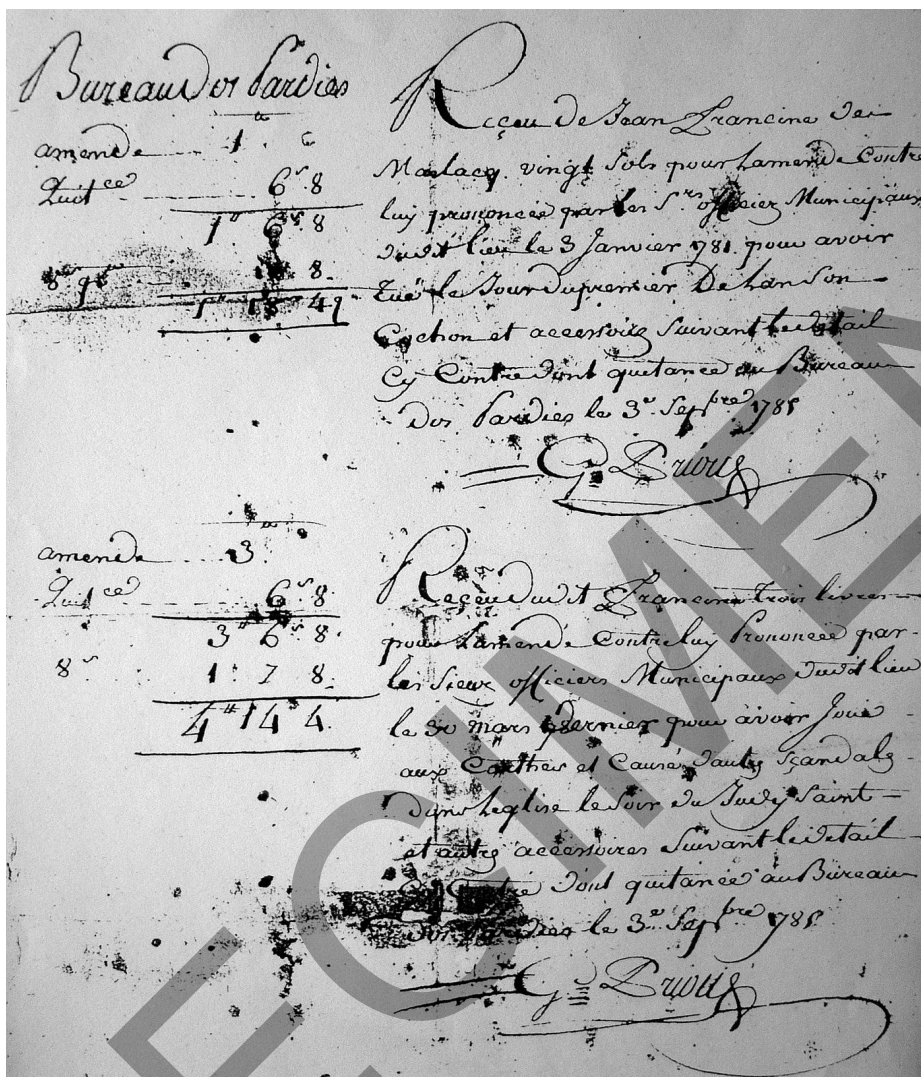 Bureau Dos Pardies
amende 1 " 6
Quit ce 6 s 8
1 " 6 s 8
8 s 8
1 " 4
Reçeu de Jean Francine de
Maslacq vingt sols pour Lamende Contre
luy prononcée par les S.rs officiez Municipaux
dudit lieu le 3 Janvier 1781 pour avoir
Tué le Jour du premier De Lan Son
Cochon et accessoire Suivant le detail
Cy Contre dont quitance au Bureau
Dos Pardies le 3e Sepbre 1781
G. Prioü
amende 3 "
Quit ce 6 s 8
3 " 6 s 8
8 s 1 " 7 8
4 " 14 4
Reçeu dudit Francine trois livres
pour Lamende Contre luy Prononcée par
les Sieur officiers Municipaux dudit lieu
le 30 mars dernier pour avoir Joué
aux Carthes et Causé dautres Scandals
dans Leglise le soir du Judy Saint
et autres accessoires Suivant le detail
Cy Contre dont quitance au Bureau
Dos Pardies le 3e Sepbre 1781
G. Prioü
ECIMEN